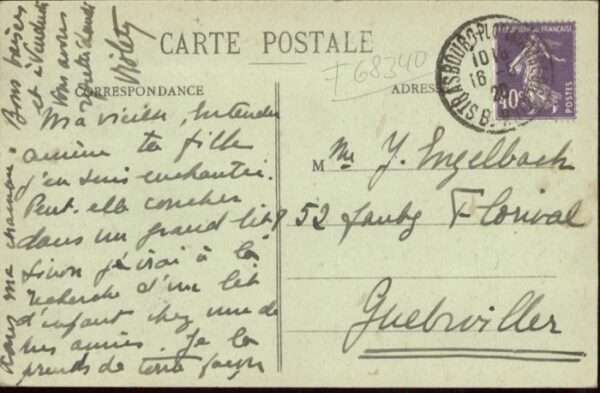 CARTE POSTALE
CORRESPONDANCE
ADRESSE
F 68340
Ma vieille, Entendu
amène ta fille
j'en suis enchantée.
Peut-elle coucher
dans un grand lit?
Sinon j'irai à la
recherche d'un lit
d'enfant chez une de
mes amies. Je la
prends de toute façon
dans ma chambre. Bons baisers
et à Vendredi
Vous avez
Violety
Mme J. Engelbach
52 faubg Florival
Guebwiller
STRASBOURG-PL
10
16
BAS
40c
POSTES